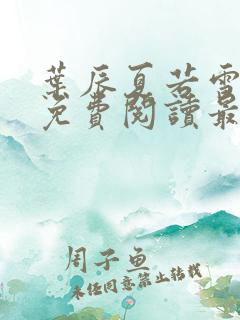 葉辰夏若雪
免費閱讀最
周子魚
未经同意禁止转载